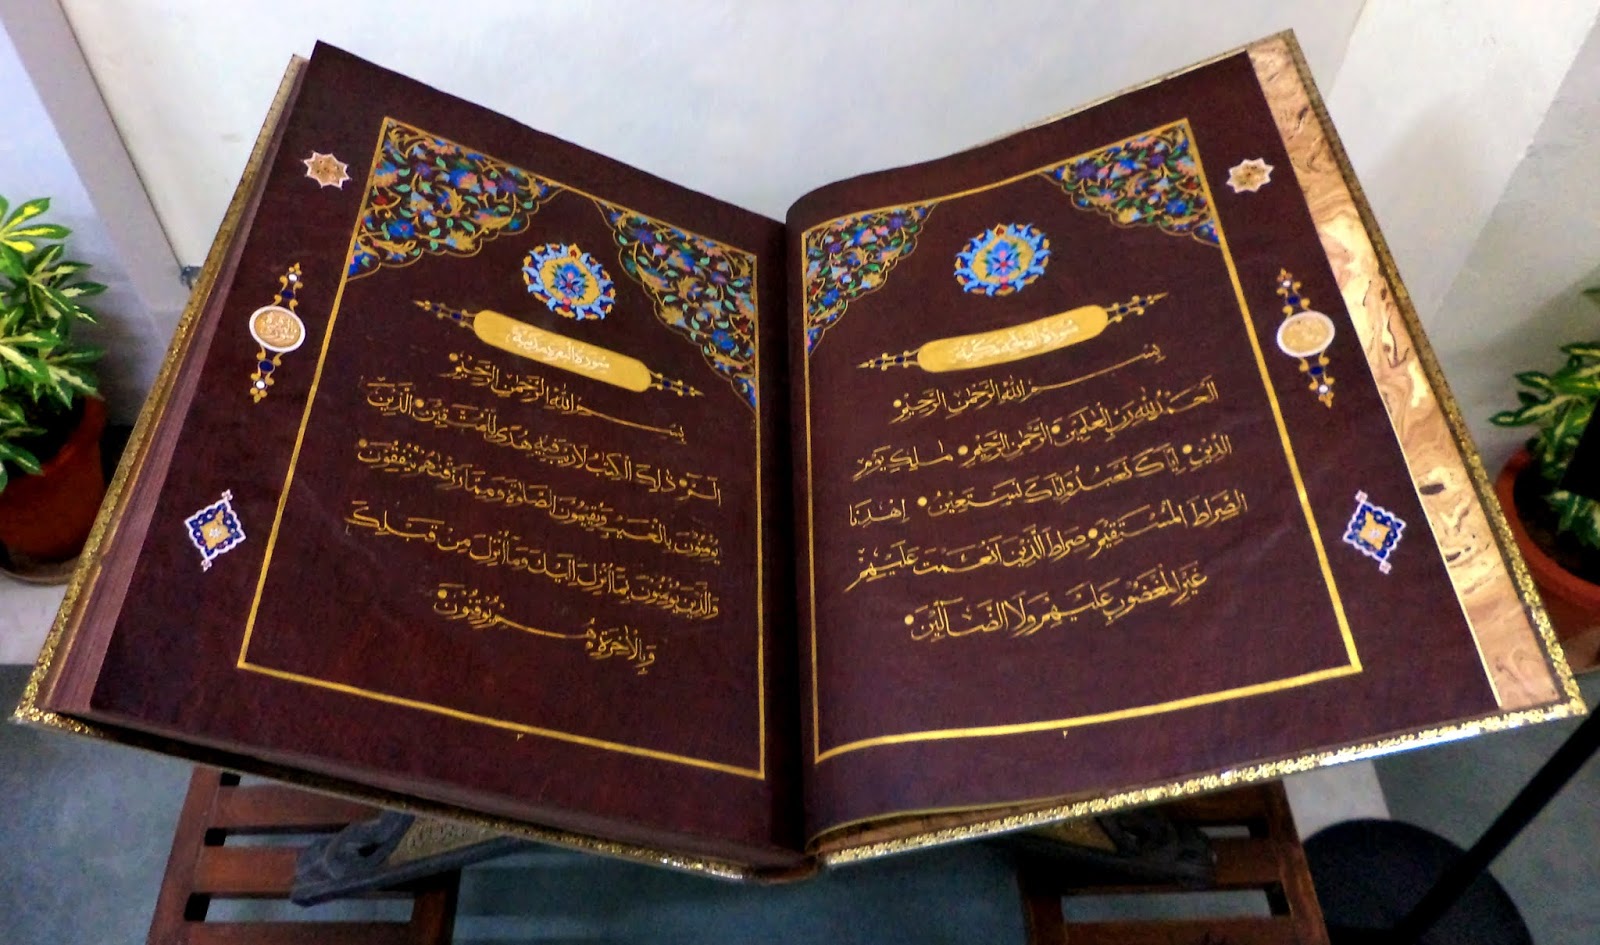 سُورَةُ الْفَاتِحَةِ مَكِّيَّةٌ
بِسْمِ اللهِ الرَّحْمٰنِ الرَّحِيْمِ
اَلْحَمْدُ لِلّٰهِ رَبِّ الْعٰلَمِيْنَ • الرَّحْمٰنِ الرَّحِيْمِ • مٰلِكِ يَوْمِ
الدِّيْنِ • اِيَّاكَ نَعْبُدُ وَاِيَّاكَ نَسْتَعِيْنُ • اِهْدِنَا
الصِّرَاطَ الْمُسْتَقِيْمَ • صِرَاطَ الَّذِيْنَ اَنْعَمْتَ عَلَيْهِمْ
غَيْرِ الْمَغْضُوْبِ عَلَيْهِمْ وَلَا الضَّآلِّيْنَ •
٢
سُورَةُ الْبَقَرَةِ مَدَنِيَّةٌ
بِسْمِ اللهِ الرَّحْمٰنِ الرَّحِيْمِ •
الٓمّٓ • ذٰلِكَ الْكِتٰبُ لَا رَيْبَ فِيْهِ هُدًى لِلْمُتَّقِيْنَ • الَّذِيْنَ
يُؤْمِنُوْنَ بِالْغَيْبِ وَيُقِيْمُوْنَ الصَّلٰوةَ وَمِمَّا رَزَقْنٰهُمْ يُنْفِقُوْنَ •
وَالَّذِيْنَ يُؤْمِنُوْنَ بِمَا اُنْزِلَ اِلَيْكَ وَمَا اُنْزِلَ مِنْ قَبْلِكَ
وَبِالْاٰخِرَةِ هُمْ يُوْقِنُوْنَ •
٣